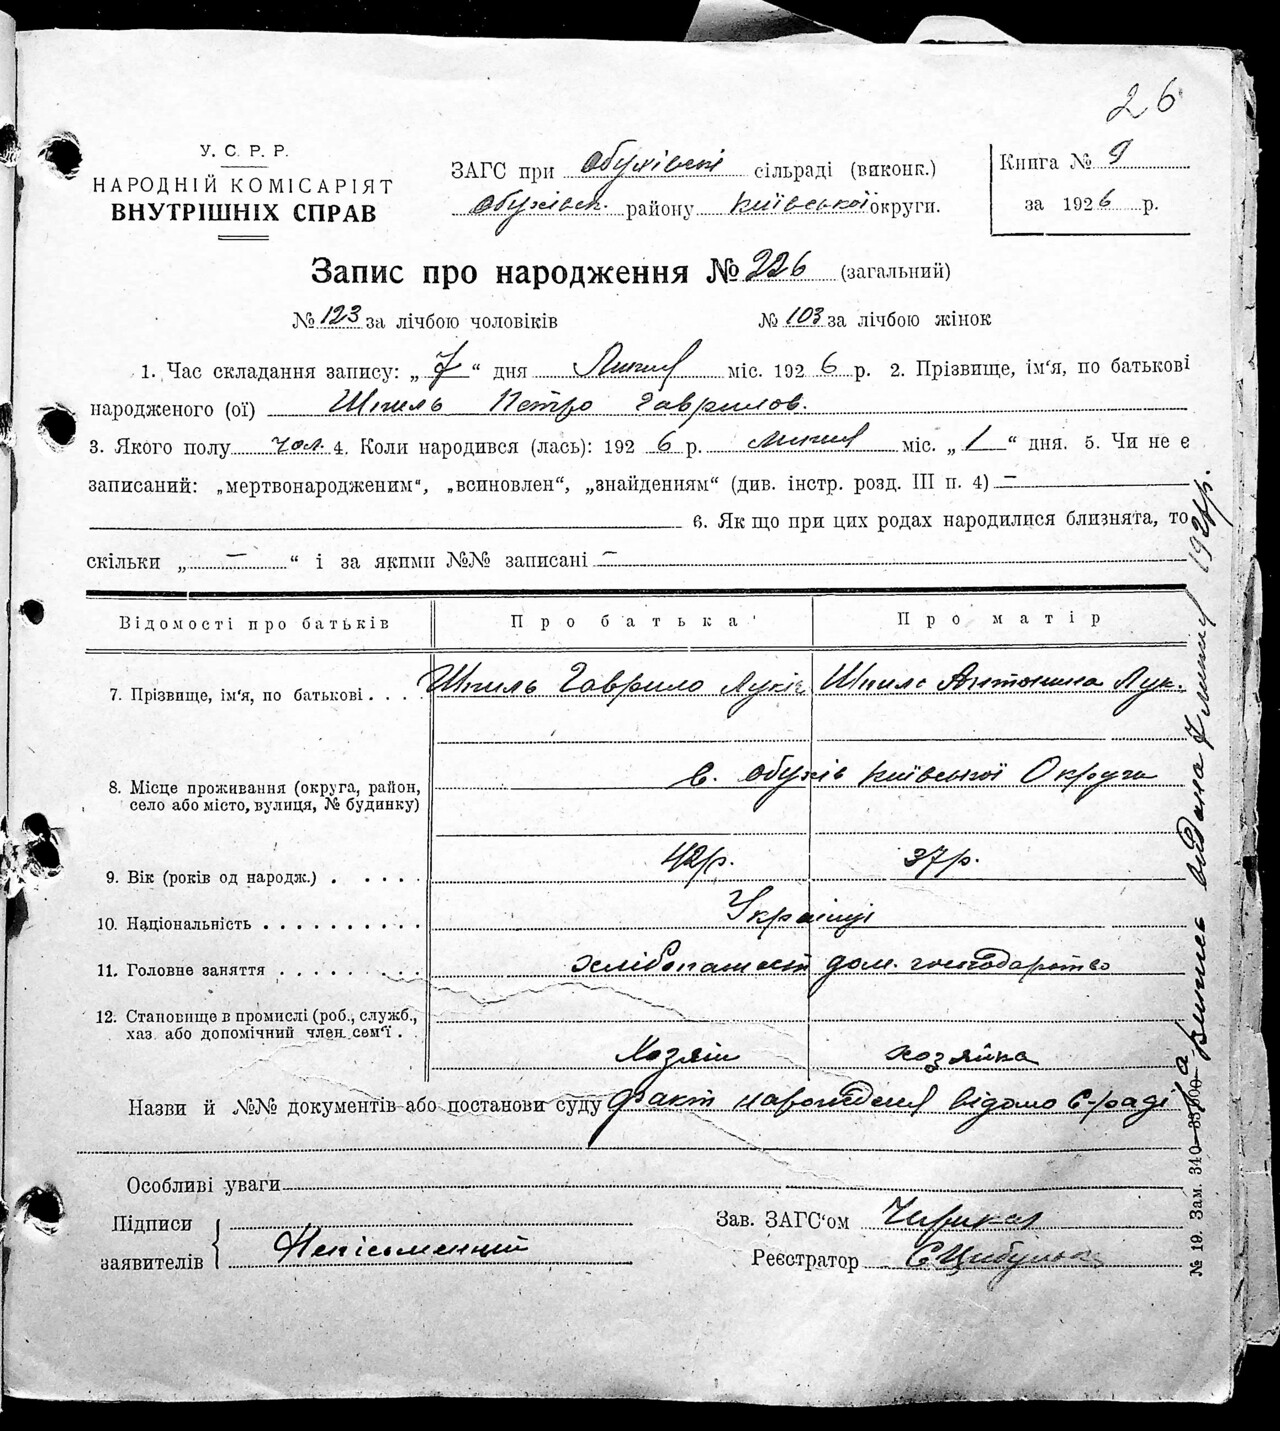 26
У. С. Р. Р.
НАРОДНІЙ КОМІСАРІЯТ
ВНУТРІШНІХ СПРАВ
ЗАГС при Обухівськ сільраді (виконк.)
Обухівськ. району Київської округи.
Книга № 9
за 1926 р.
Запис про народження № 226 (загальний)
№ 123 за лічбою чоловіків № 103 за лічбою жінок
1. Час складання запису: „7“ дня Липня міс. 1926 р. 2. Прізвище, ім‘я, по батькові
народженого (ої) Шпиль Петро Гаврилов.
3. Якого полу чол. 4. Коли народився (лась): 1926 р. липня міс. „1“ дня. 5. Чи не є
записаний: „мертвонародженим“, „всиновлен“, „знайденням“ (див. інстр. розд. III п. 4) –
6. Як що при цих родах народилися близнята, то
скільки „ – “ і за якими №№ записані –
Відомості про батьків Про батька Про матір
7. Прізвище, ім‘я, по батькові . . . Шпиль Гаврило Лукіч Шпиль Антонина Лук.
8. Місце проживання (округа, район,
село або місто, вулиця, № будинку)
с. Обухів Київської Округи
9. Вік (років од народж.) . . . . . 42р. 37р.
10. Національність . . . . . . . . . . Українці
11. Головне заняття . . . . . . . . . хлібопашест дом. господарство
12. Становище в промислі (роб., служб.,
хаз. або допомічний член сем‘ї .
Хозяін хозяйка
Назви й №№ документів або постанови суду Факт народження відомо С-раді
Особливі уваги
Підписи
заявителів
Неписьменний
Зав. ЗАГС‘ом
Реєстратор Є Цибулько
Випись видана 7 липня 192 р.
№ 19. Зам. 310